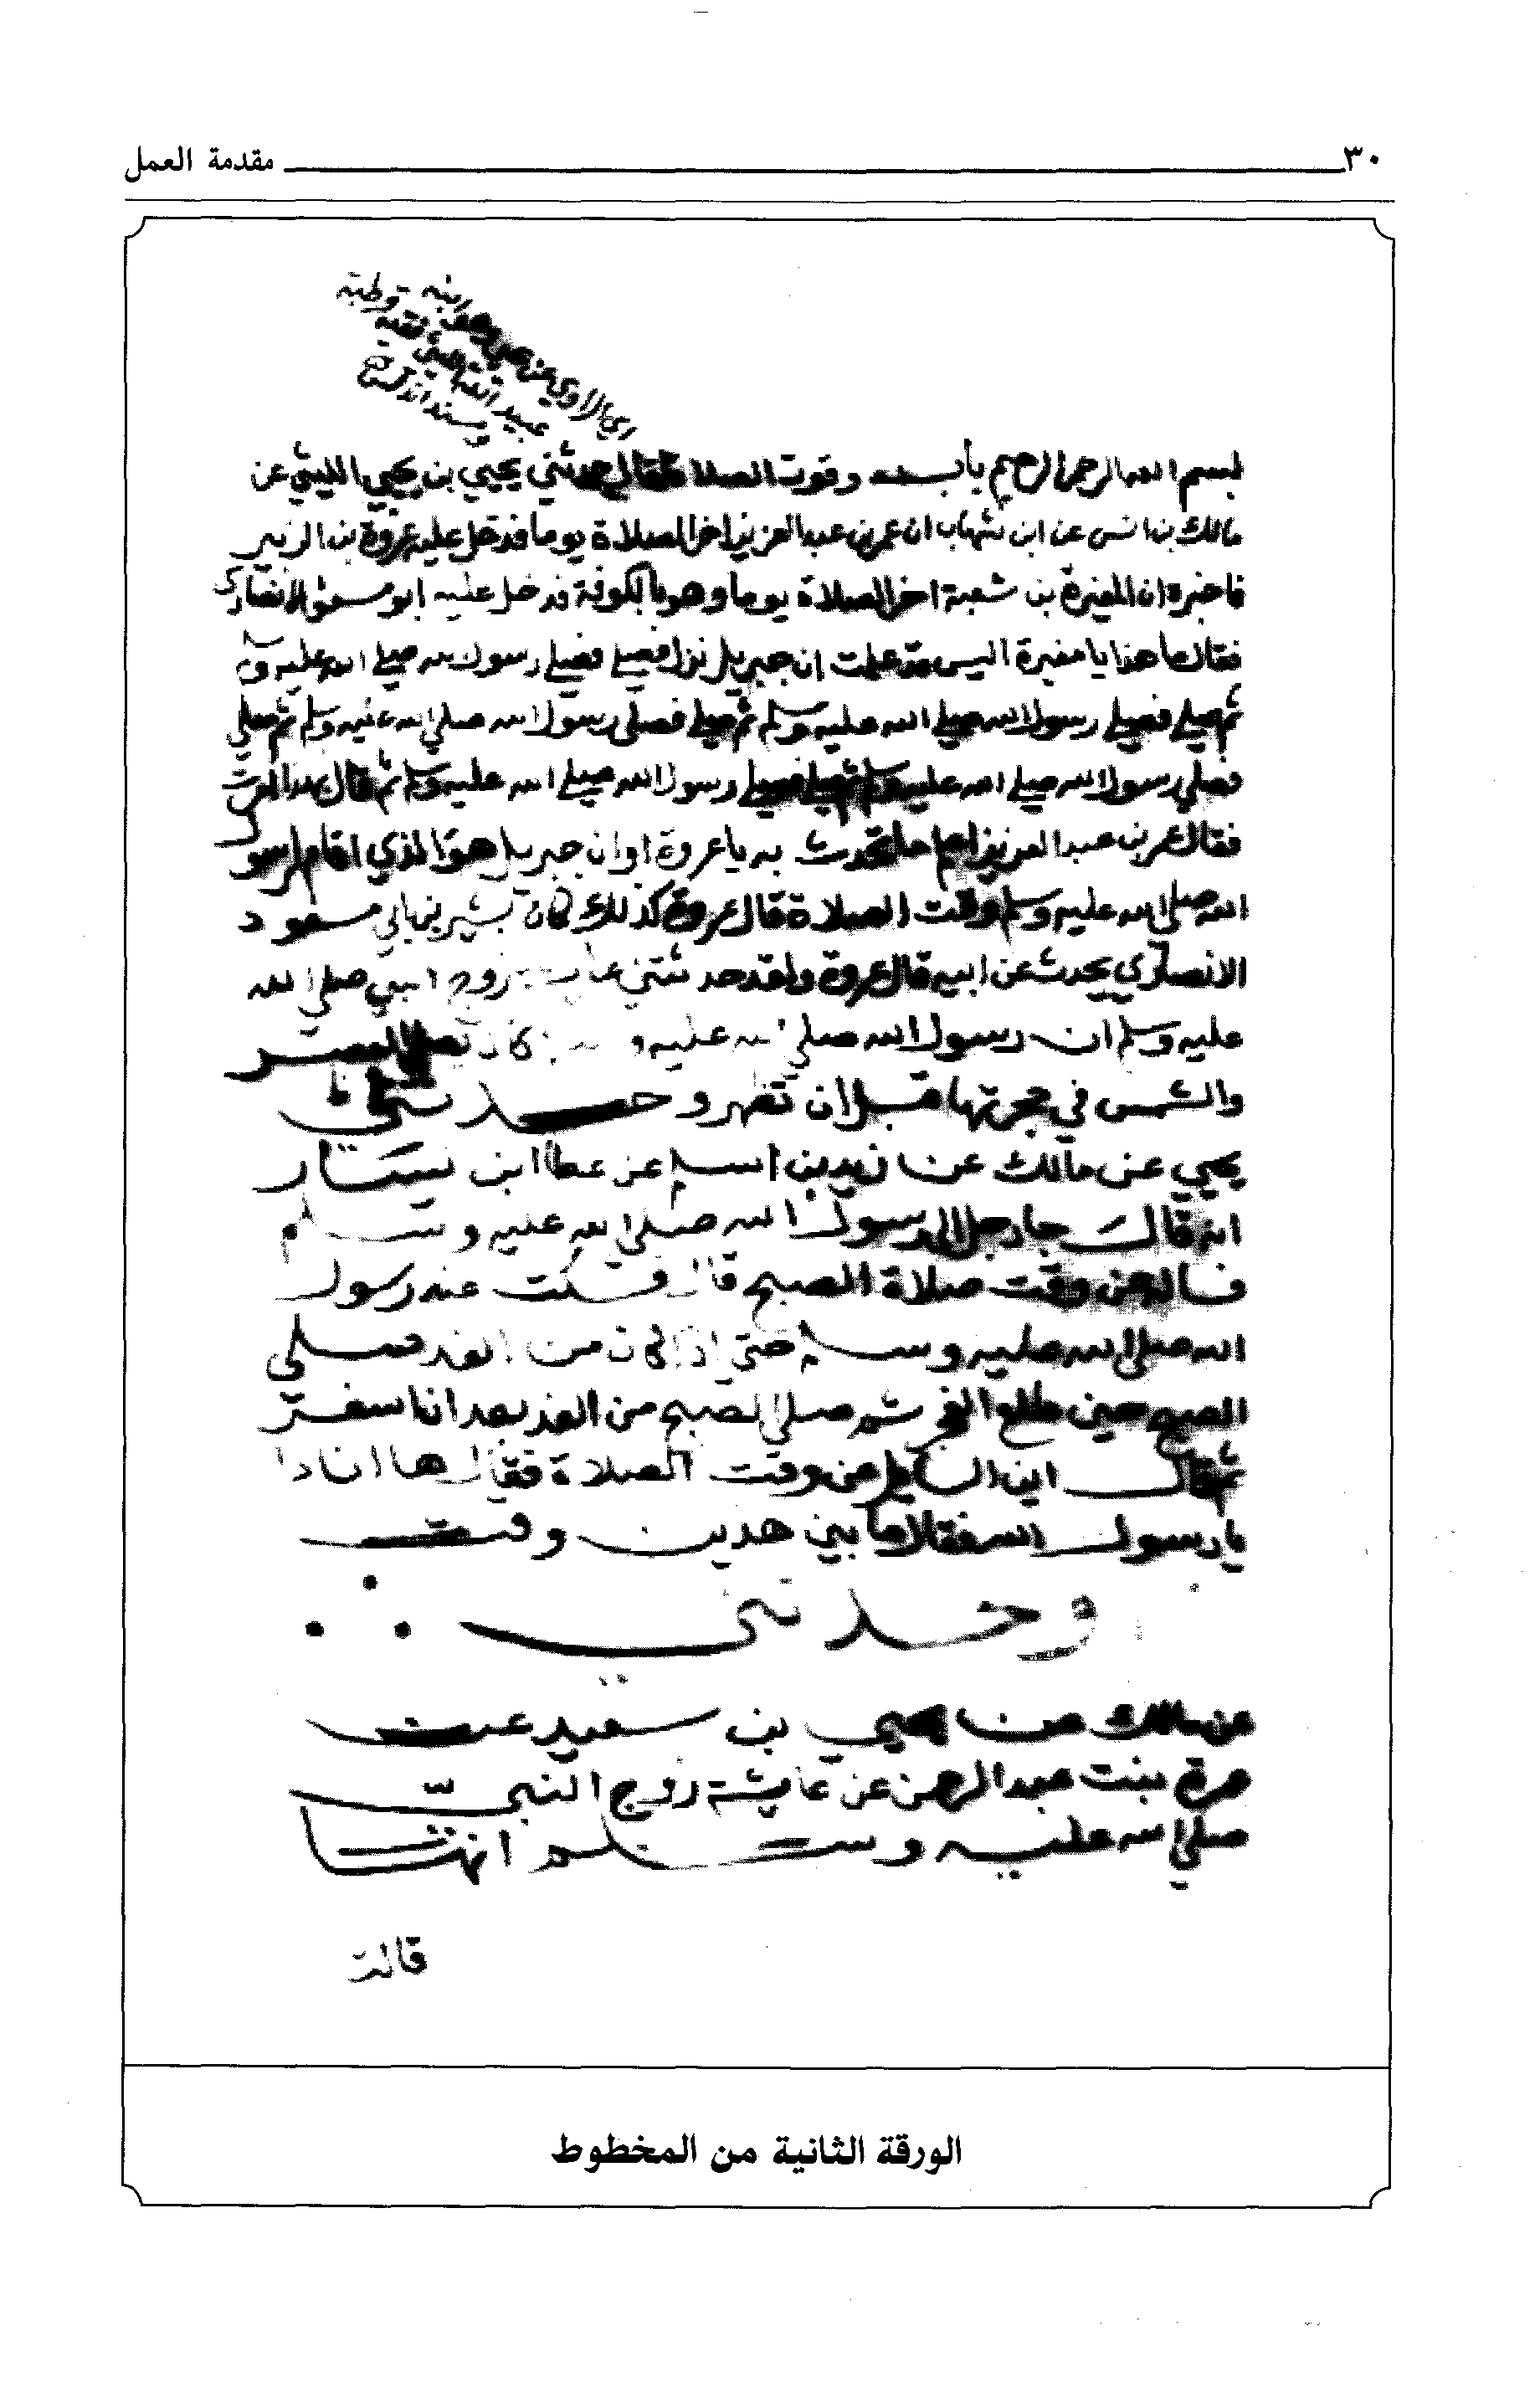 ٣٠ مقدمة العمل
بسم الله الرحمن الرحيم باب وقوت الصلاة قال حدثني يحيي بن يحيي الليثي عن
مالك بن انس عن ابن شهاب ان عمر بن عبد العزيز اخر الصلاة يوما فدخل عليه عروة بن الزبير
فاخبره ان المغيرة بن شعبة اخر الصلاة يوما وهو بالكوفة فدخل عليه ابو مسعود الانصاري
فقال ما هذا يا مغيرة اليس قد علمت ان جبريل نزل فصلي فصلي رسول الله صلي الله عليه وسلم
ثم صلي فصلي رسول الله صلي الله عليه وسلم ثم صلي فصلي رسول الله صلي الله عليه وسلم ثم صلي
فصلي رسول الله صلي الله عليه وسلم ثم صلي فصلي رسول الله صلي الله عليه وسلم ثم قال بهذا امرت
فقال عمر بن عبد العزيز اعلم ما تحدث به يا عروة او ان جبريل هو الذي اقام لرسول
الله صلي الله عليه وسلم وقت الصلاة قال عروة كذلك كان بشير بن ابي مسعود
الانصاري يحدث عن ابيه قال عروة ولقد حدثتني زوج النبي صلي الله
عليه وسلم ان رسول الله صلي الله عليه كان يصلي العصر
والشمس في حجرتها قبل ان تظهر وحدثني
يحيي عن مالك عن زيد بن اسلم عن عطا ابن يسار
انه قال جا رجل الي رسول الله صلي الله عليه وسلم
فساله عن وقت صلاة الصبح قال فسكت عنه رسول
الله صلي الله عليه وسلم حتي اذا كان من الغد صلي
الصبح حين طلع الفجر ثم صلي الصبح من الغد بعد ان اسفر
ثم قال اين السايل عن وقت الصلاة فقال ها انا ذا
يا رسول الله فقال ما بين هذين وقت
وحدثني
عن مالك عن يحيي بن سعيد عن
عمرة بنت عبد الرحمن عن عايشة زوج النبي
صلي الله عليه وسلم انها
قالت
الورقة الثانية من المخطوط